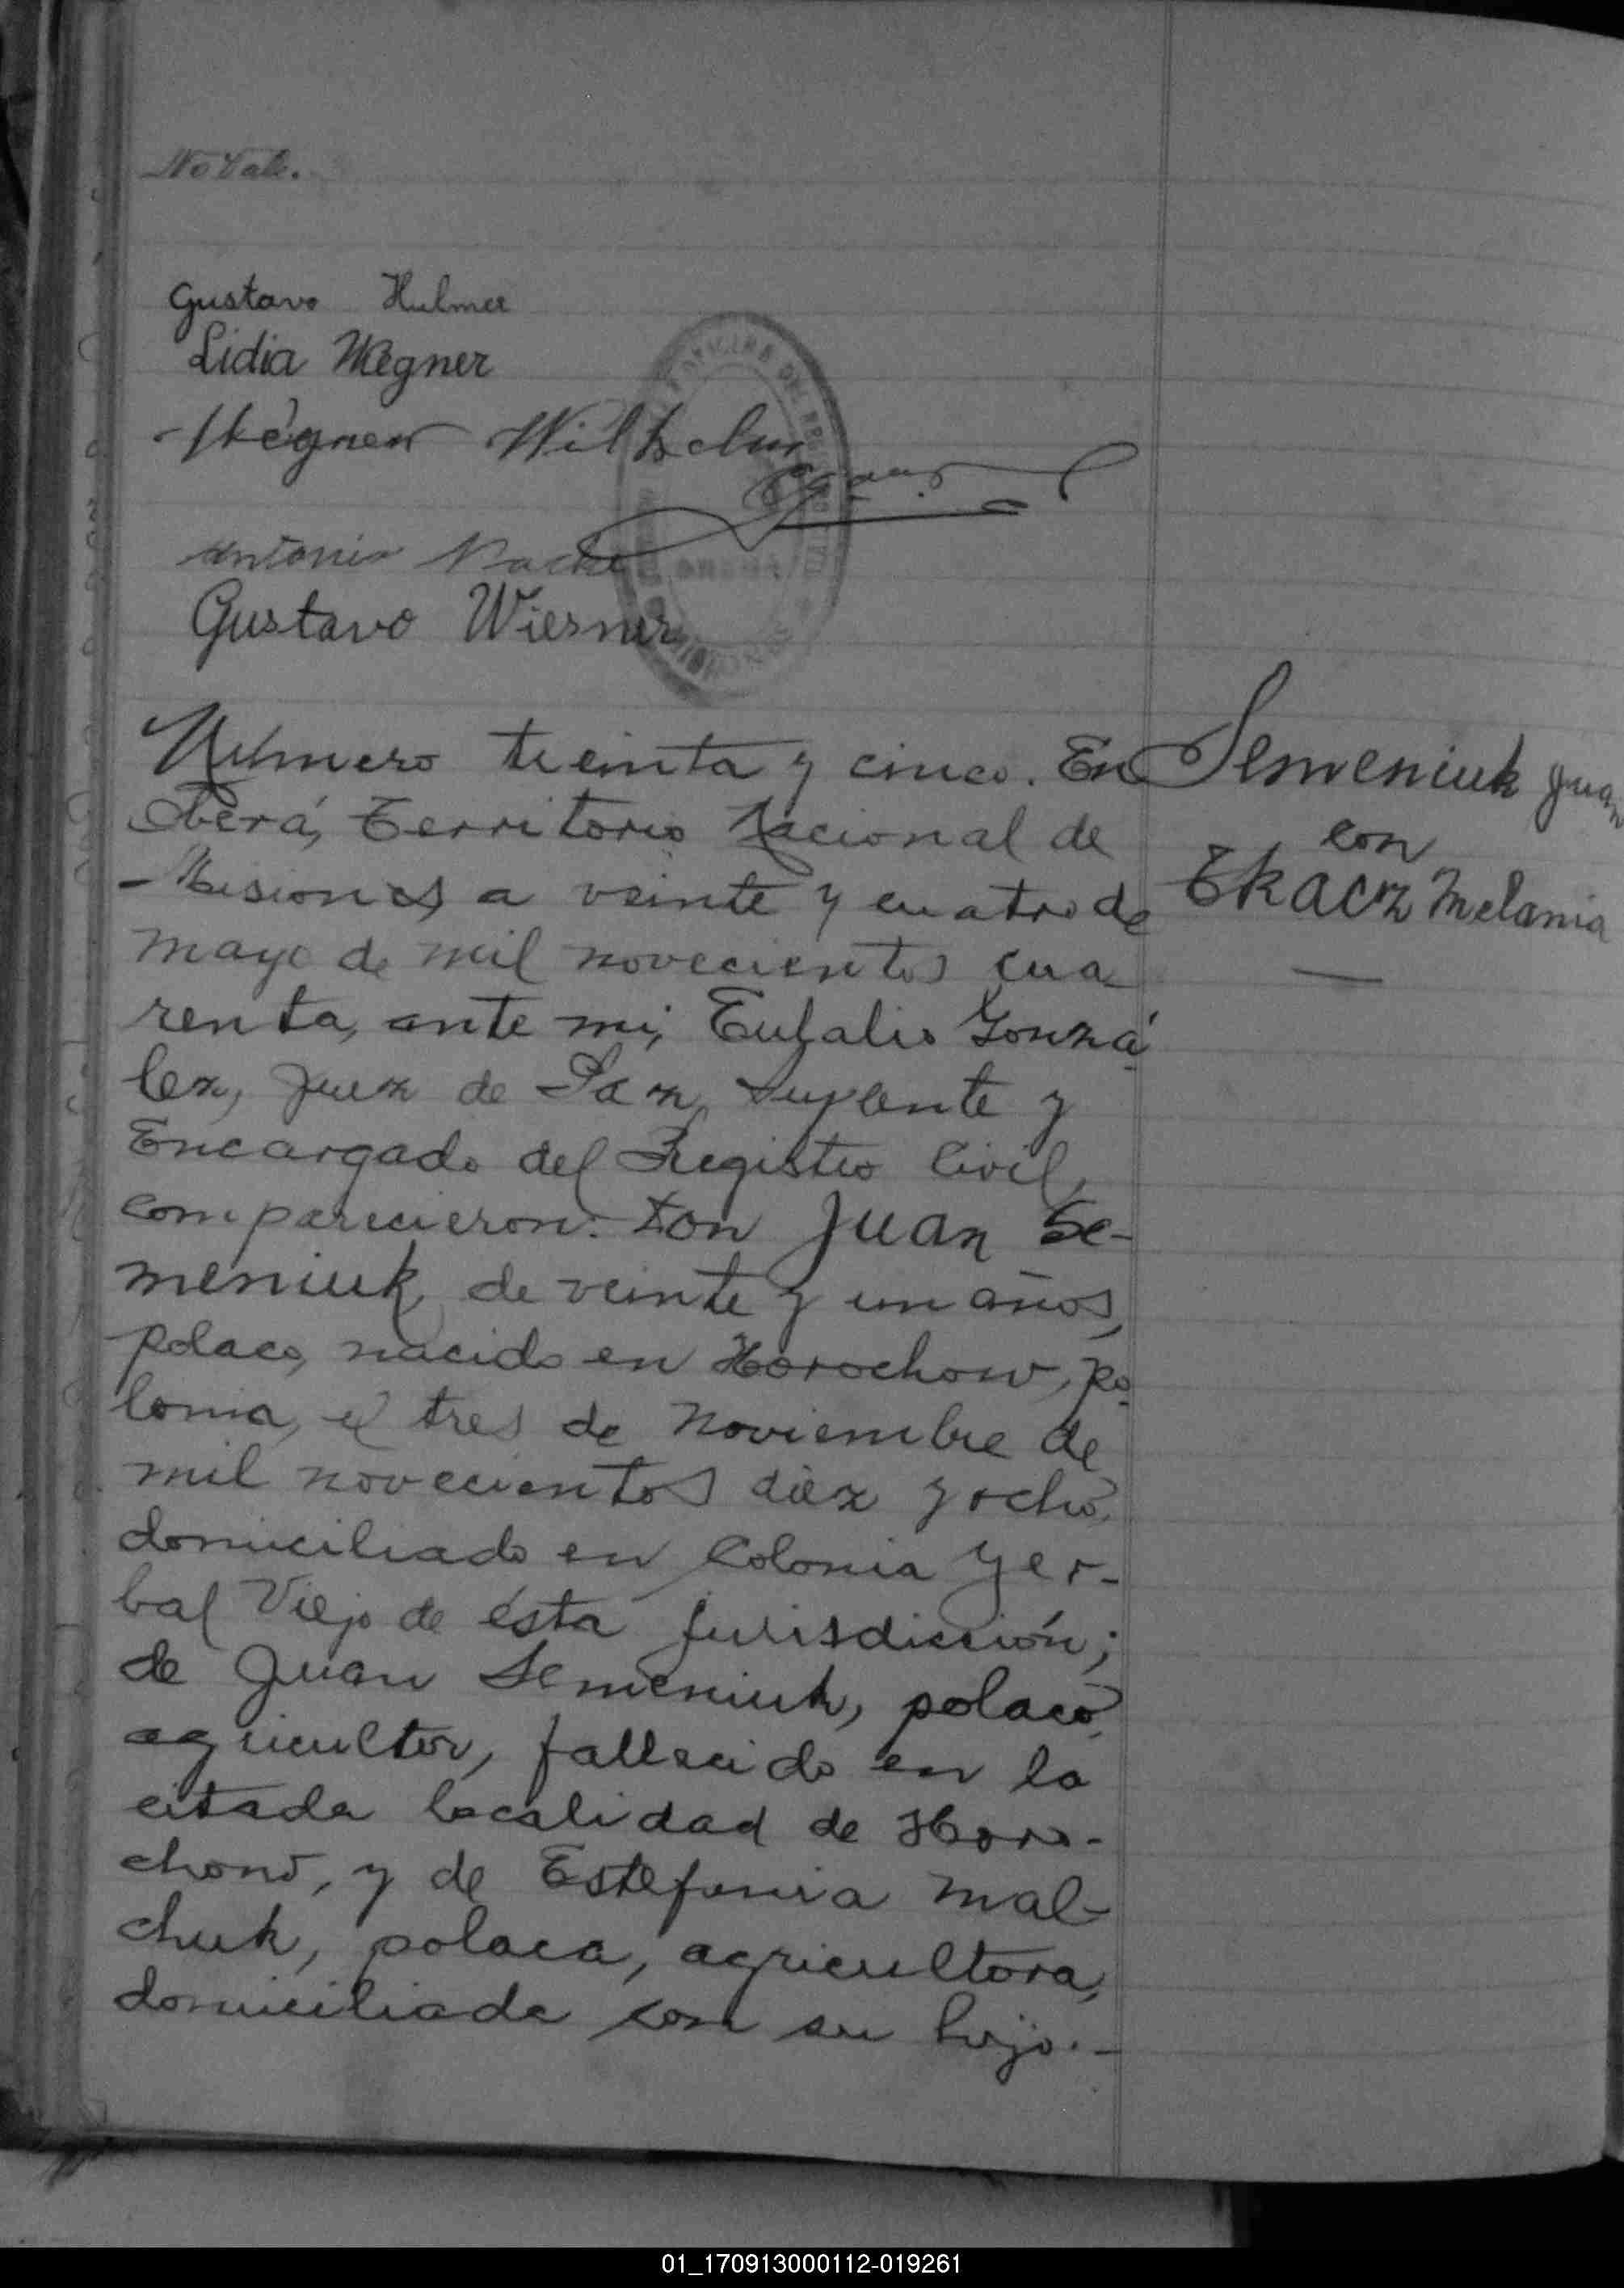 No Vale.
Gustavo Hulmer
Lidia Wegner
Wegner Wilhelm
Antonio
Gustavo Wiesner
Número treinta y cinco. En
Oberá, Territorio Nacional de
Misiones, a veinte y cuatro de
mayo de mil novecientos cua-
renta, ante mi, Eulalio Gonzá-
lez, Juez de Paz Suplente y
Encargado del Registro Civil,
comparecieron: Don Juan Se-
meniuk, de veinte y un años,
polaco, nacido en Horochow, Po-
lonia, el tres de Noviembre de
mil novecientos diez y ocho,
domiciliado en Colonia Yer-
bal Viejo de ésta jurisdicción;
de Juan Semeniuk, polaco,
agricultor, fallecido en la
citada localidad de Horo-
chow, y de Estefania Mal-
chuk, polaca, agricultora,
domiciliada con su hijo.-
Semeniuk Juan
con
Tkacz Melania
01_170913000112-019261